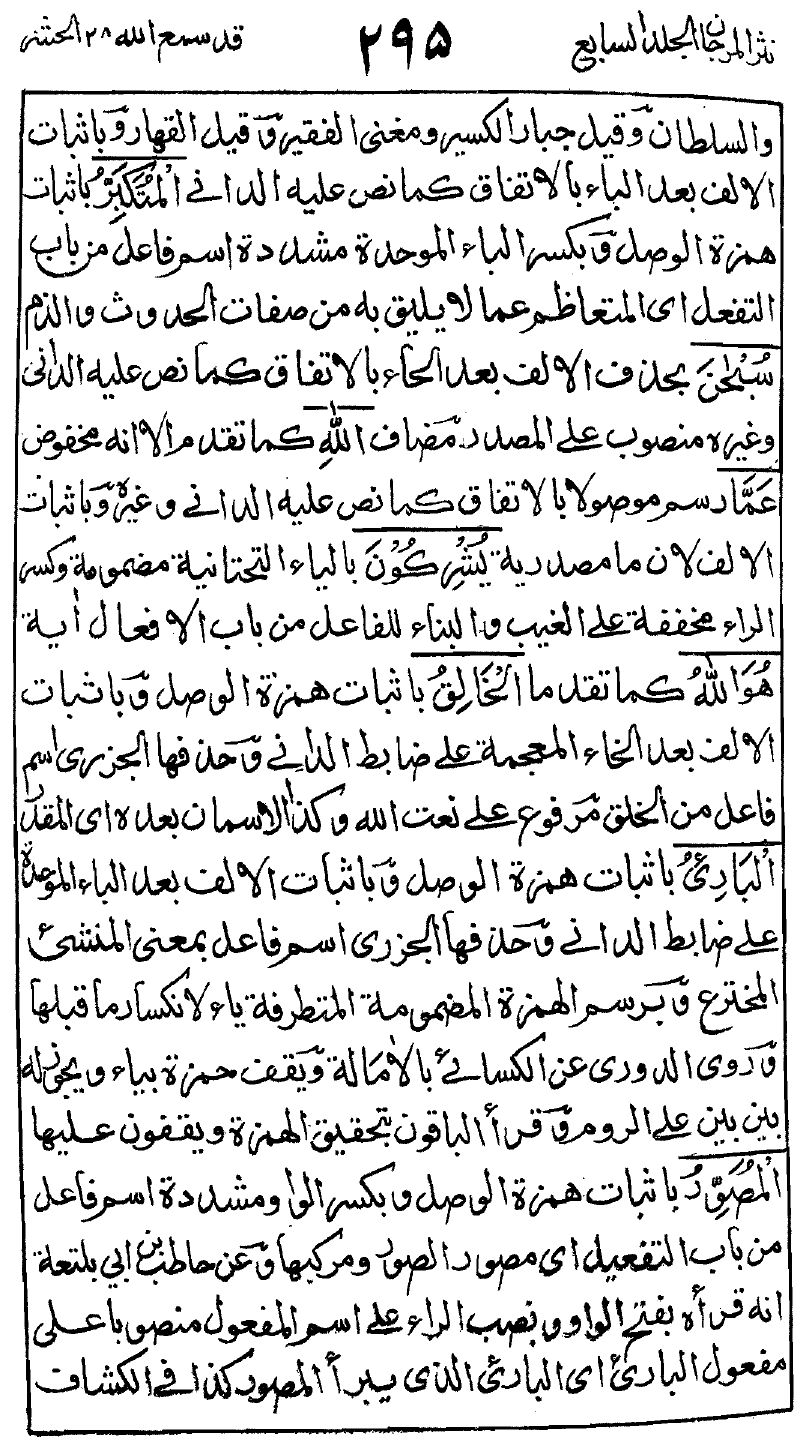 نثر المرجان الجلد السابع ٢٩٥ قد سمع الله ٢٨ الحشر
والسلطان وقيل جبار الكسير ومغنى الفقير وقيل القهار وباثبات
الالف بعد الباء بالاتفاق كما نص عليه الدانى اَلْمُتَكَبِّرُ باثبات
همزة الوصل وبكسر الباء الموحدة مشددة اسم فاعل من باب
التفعل اى المتعاظم عما لا يليق به من صفات الحدوث والذم
سُبْحٰنَ بحذف الالف بعد الحاء بالاتفاق كما نص عليه الدانى
وغيره منصوب على المصدر مضاف اللّٰهِ كما تقدم الا انه مخفوض
عَمَّا رسم موصولا بالاتفاق كما نص عليه الدانى وغيره وباثبات
الالف لان ما مصدرية يُشْرِكُوْنَ بالياء التحتانية مضمومة وكسر
الراء مخففة على الغيب والبناء للفاعل من باب الافعال أية
هُوَ اللّٰهُ كما تقدما اَلْخَالِقُ باثبات همزة الوصل وباثبات
الالف بعد الخاء المعجمة على ضابط الدانى وحذفها الجزرى اسم
فاعل من الخلق مرفوع على نعت الله وكذا الاسمان بعده اى المقدر
اَلْبَارِئُ باثبات همزة الوصل وباثبات الالف بعد الباء الموحدة
على ضابط الدانى وحذفها الجزرى اسم فاعل بمعنى المنشئ
المخترع وبرسم الهمزة المضمومة المتطرفة ياء لانكسار ما قبلها
وروى الدورى عن الكسائى بالامالة ويقف حمزة بياء ويجوز له
بين بين على الروم وقرأ الباقون بتحقيق الهمزة ويقفون عليها
اَلْمُصَوِّرُ باثبات همزة الوصل وبكسر الواو مشددة اسم فاعل
من باب التفعيل اى مصور الصور ومركبها وعن حاطب بن ابى بلتعة
انه قرأه بفتح الواو ونصب الراء على اسم المفعول منصوبا على
مفعول البارئ اى البارئ الذى يبرأ المصور كذا فى الكشاف